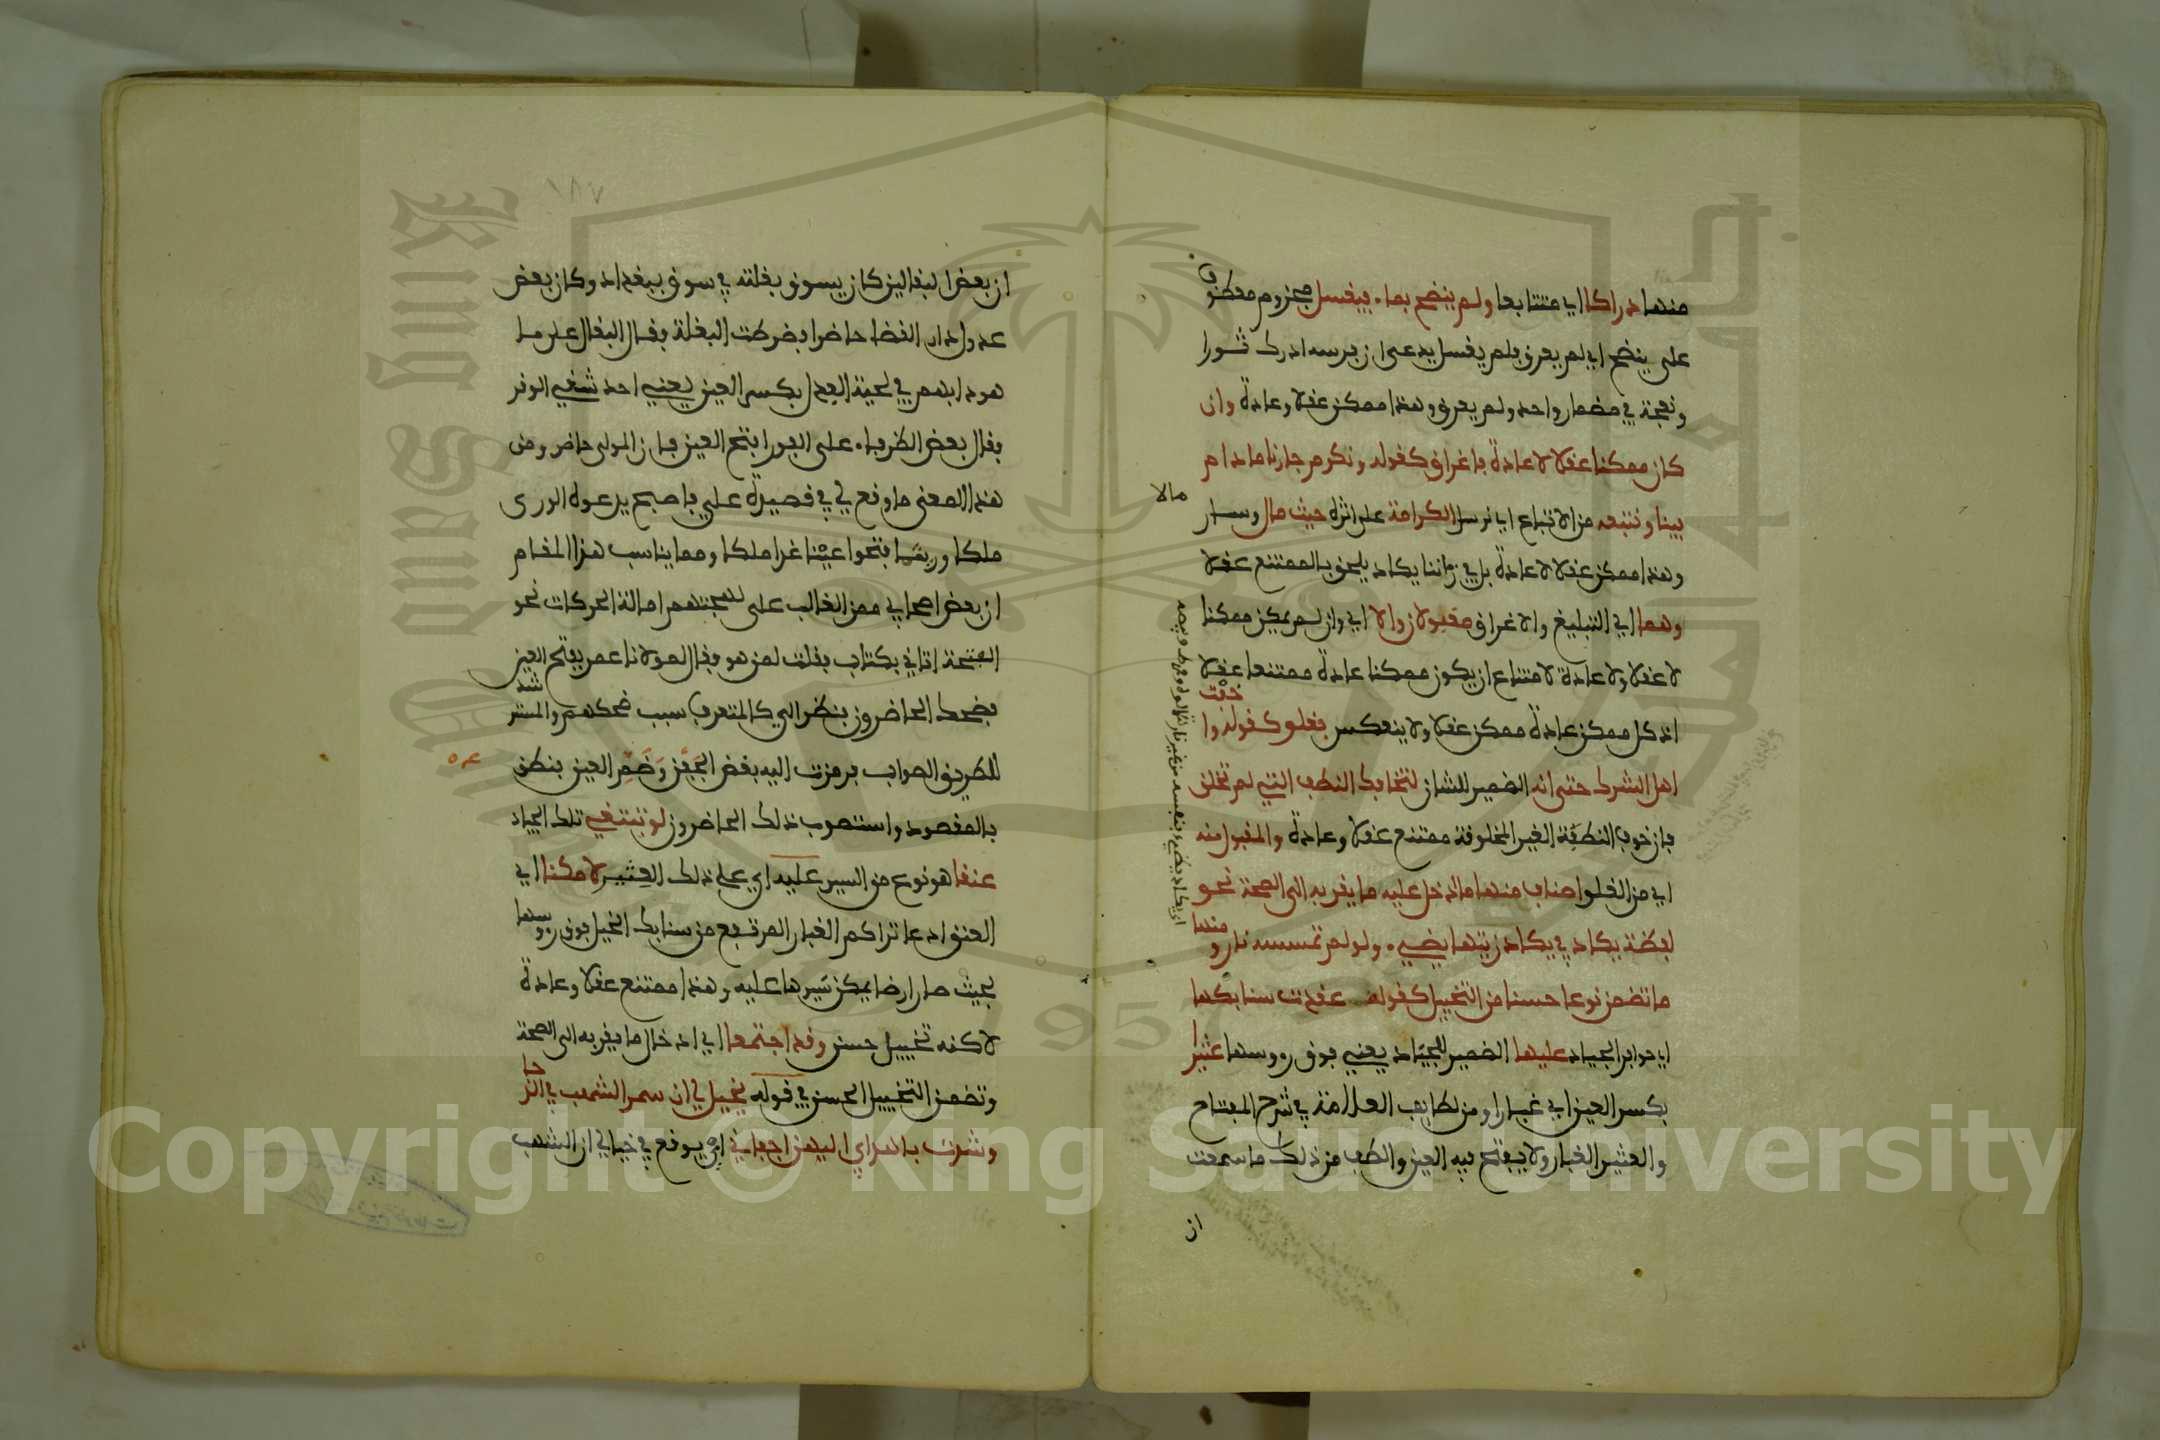 منهما دراكا اي متتابعا ولم ينضح بماء فيغسل مجزوم معطوف
على ينضح اي لم يعرق فلم يغسل يدعى ان فرسه ادرك ثورا
ونعجة في مضمار واحد ولم يعرق وهذا ممكن عقلا وعادة وان
كان ممكنا عقلا لا عادة فاغراق كقوله ونكرم جارنا مادام
فينا ونتبعه من الاتباع اي نرسل الكرامة على اثره حيث مال وسار
مالا
وهذا ممكن عقلا لا عادة بل في زماننا يكاد يلحق بالممتنع عقلا
وهما اي التبليغ والاغراق مقبولان والا اي وان لم يكن ممكنا
لا عقلا ولا عادة لامتناع ان يكون ممكنا عادة ممتنعا عقلا
اذ كل ممكن عادة ممكن عقلا ولا ينعكس فغلو كقوله واخفت
اهل الشرك حتى انه الضمير للشان لتخافك النطف التي لم تخلق
فان خوف النطفة الغير المخلوقة ممتنع عقلا وعادة والمقبول منه
اي من الغلو اصناف منها ما ادخل عليه ما يقربه الى الصحة نحو
لفظة يكاد في يكاد زيتها يضيء ولو لم تمسسه نار ومنها
ما تضمن نوعا حسنا من التخييل كقوله عقدت سنابكها
اي حوافر الجياد عليها الضمير للجياد يعني فوق رووسها عثيرا
بكسر العين اي غبارا ومن لطايف العلامة في شرح المفتاح
والعثير الغبار ولا يفتح فيه العين والطف من ذلك ما سمعت
ان
١٨٧
ان بعض البغالين كان يسوق بغلته في سوق ببغداد وكان بعض
عدول دار القضا حاضرا فضرطت البغلة فقال البغال على ما
هو دابهم في لحية العدل بكسر العين يعني احد شقي الوقر
فقال بعض الظرفاء على الفور افتح العين فان المولى حاضر ومن
هذا المعنى ما وقع لي في قصيدة علي فاصبح يدعوه الورى
ملكا وريثما فتحوا عينا غدا ملكا ومما يناسب هذا المقام
ان بعض اصحابي ممن الغالب على لهجتهم امالة الحركات نحو
الفتحة اتاني بكتاب فقلت لمن هو فقال لمولانا عمر بفتح العين
فضحك الحاضرون فنظر الي كالمتعرف سبب ضحكهم والمسترشد
للطريق الصواب فرمزت اليه بغض الجفن وضم العين فتفطن
بالمقصود واستصوب ذلك الحاضرون لو تبتغي تلك الجياد
عنقا هو نوع من السير عليه اي على ذلك العثير لامكنا اي
العنق ادعا تراكم الغبار المرتفع من سنابك الخيل فوق رووسها
بحيث صار ارضا يمكن سيرها عليه وهذا ممتنع عقلا وعادة
لاكنه تخييل حسن وقد اجتمعا اي ادخال ما يقربه الى الصحة
وتضمن التخييل الحسن في قوله يخيل لي ان سمر الشهب في الدجا
وشدت باهدابي اليهن اجفاني اي يوقع في خيالي ان الشهب
Copyright © King Saud University
King Saud University
1957